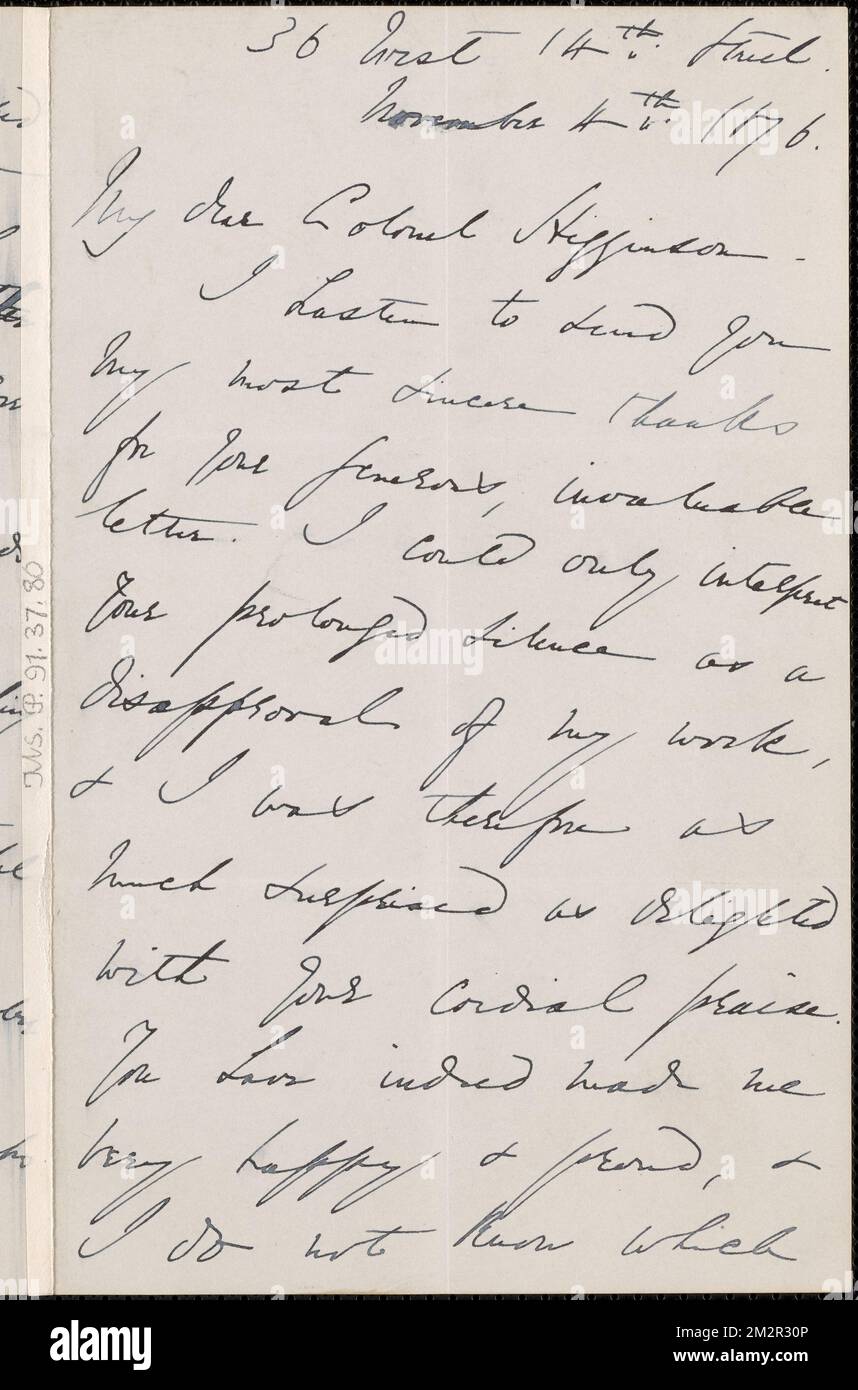 36 West 14th. Street.
November 4th. 1876.
My dear Colonel Higginson -
I hasten to send you
my most sincere thanks
for your generous, invaluable
letter. I could only interpret
your prolonged silence as a
disapproval of my work,
& I was therefore as
much surprised as delighted
with your cordial praise.
You have indeed made me
very happy & proud, &
I do not know which
Ms. P. 91.37.80
alamy
Image ID: 2M2R30P
www.alamy.com